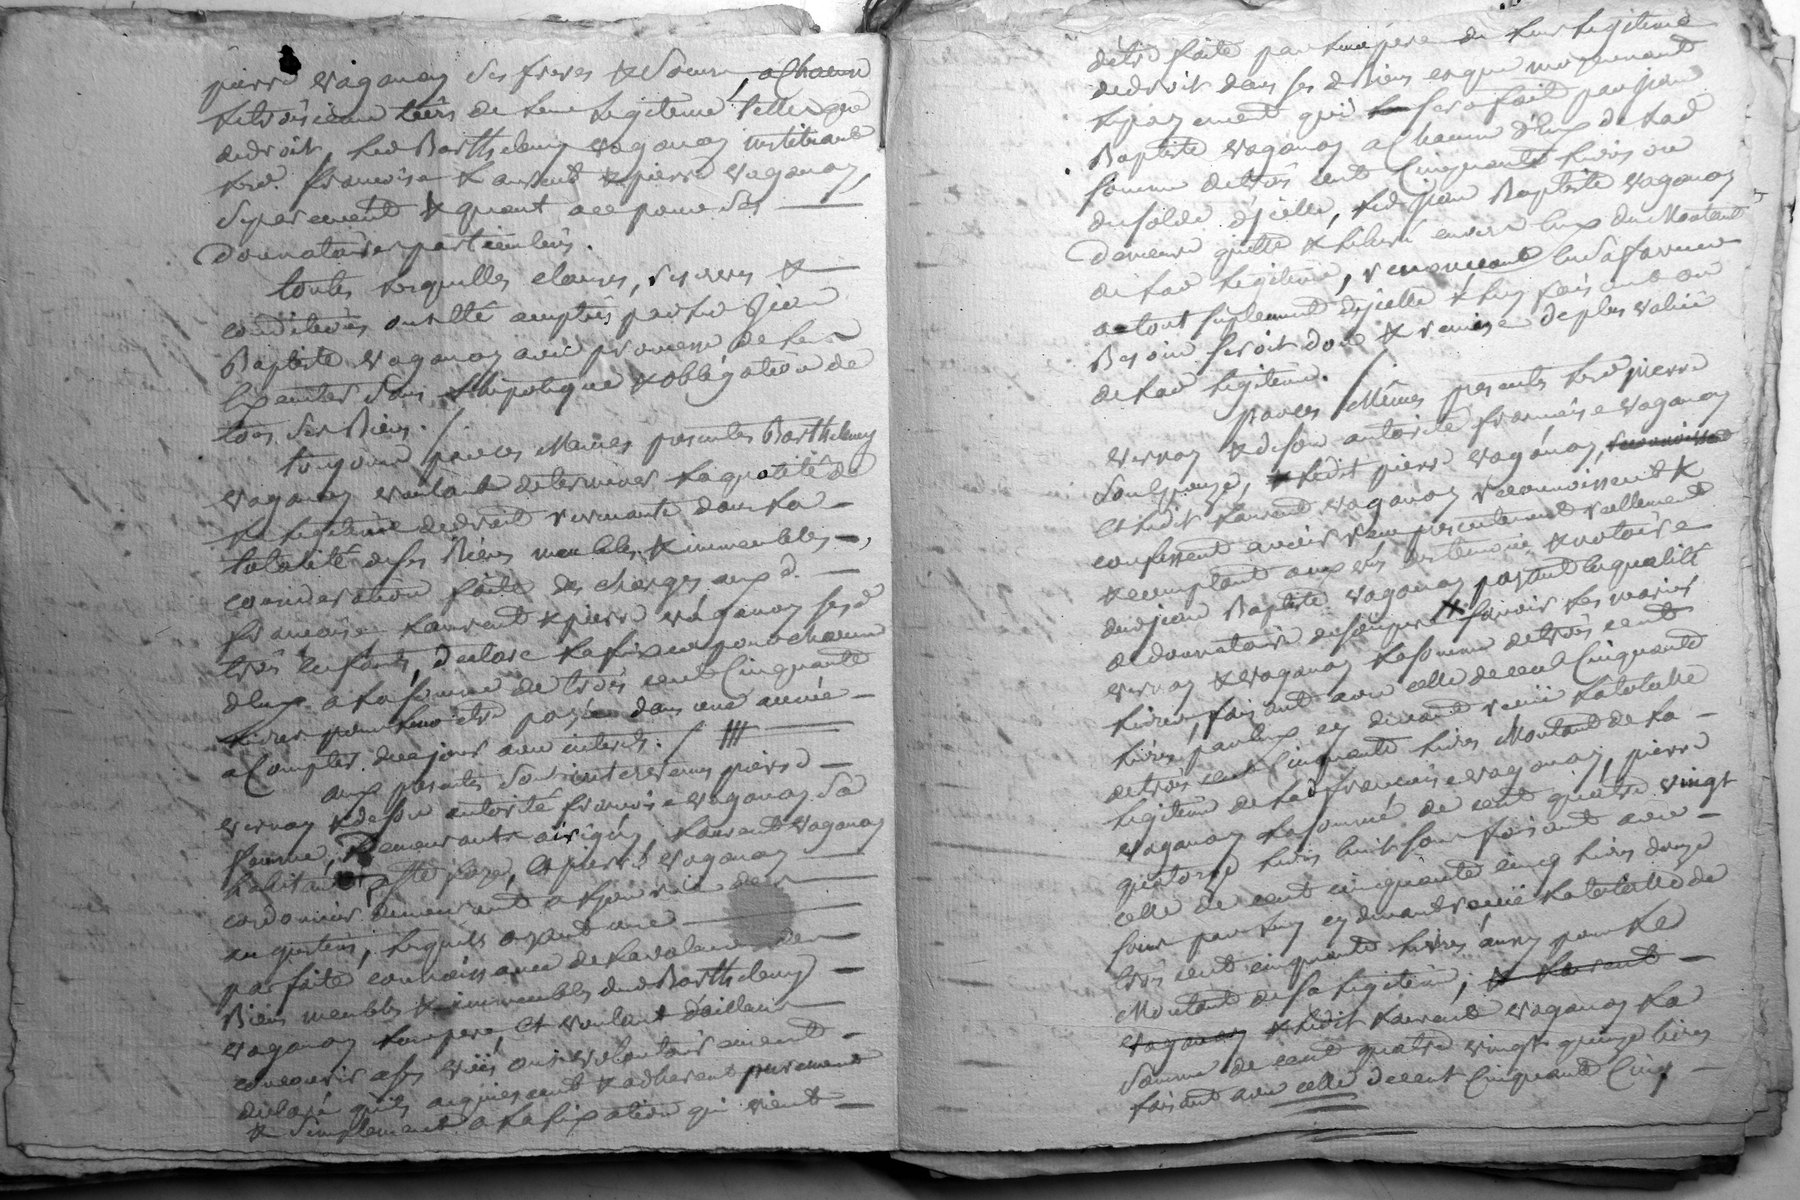 pierre vaganay ses freres & soeur, a chacun
le troisieme tiers de leur legitime telle que
de droit, led Barthelemy vaganay instituant
lesd. françoise Laurent & pierre vaganay,
separement & quant a ce pour ses
donnataires particuliers.
toutes lesquelles clauses, reserves &
conditions ont eté acceptés par led Jean
Baptiste vaganay avec promesse de les
executer sous l'hipotique & obligation de
tous ses Biens. /
toujours par ces Mêmes presentes Barthelemy
vaganay voulant determiner la quotité de
la legitime de droit revenante dans la
totalité de ses Biens meubles & immeubles,
consideration faite des charges aux d.
françoise Laurent & pierre vaganay sesd
trois enfants, declare la fixer pour chacun
d'eux a la somme de trois cent Cinquante
livres pour leur être payée dans une année
a Compter de ce jour avec interets. /
aux presentes sont intervenus pierre
vernay & de son autorité françoise vaganay sa
femme, demeurants a irigny, Laurent vaganay
habitant a ste foy, et pierre vaganay
cordonnier demeurant a
augustins, lesquels ayant une
parfaite connoissance de la valeur des
Biens meubles & immeubles dud Barthelemy
vaganay leur pere, et voulant d'ailleurs
concourir a ses vües ont volontairement
declaré qu'ils acquiescent & adherent purement
& simplement a la fixation qui vient
d'etre faite par leur pere de leur legitime
de droit dans ses d Biens et que moyenant
le payement qui le sera fait par jean
Baptiste vaganay a Chacun d'Eux de lad
somme de trois cent Cinquante livres ou
du solde d'jcelle, led jean Baptiste vaganay
demeure quitte & liberé envers Eux du Montant
de lad legitime, renonceant
a tout suplement d'jcelle & luy faisant au
Besoin seroit don & remise de plus valüe
de lad legitime. /
par ces Mêmes presentes lesd pierre
vernay & de son autorité françoise vaganay
son Epouze, & ledit pierre vaganay, reconnoissent
et ledit Laurent vaganay reconnoissent &
confessent avoir reçu presentement reellement
& comptant aux vüs des temoins & notaire
dud jean Baptiste vaganay payant En qualité
de donnataire de son pere & sçavoir les mariés
vernay & vaganay la somme de trois cent
livres, faisant avec celle de cent Cinquante
livres par Eux cy devant reçüe la totalité
de trois cent Cinquante livres Montant de la
legitime de lad françoise vaganay, pierre
vaganay la somme de cent quatre vingt
quatorze livres huit sous faisant avec
celle de cent cinquante cinq livres douze
sous par luy cy devant reçüe la totalité de
trois cent cinquante livres aussy pour le
Montant de sa legitime, & Laurent
vaganay & ledit Laurent vaganay la
somme de cent quatre vingt quinze livres
faisant avec celle de cent Cinquante Cinq